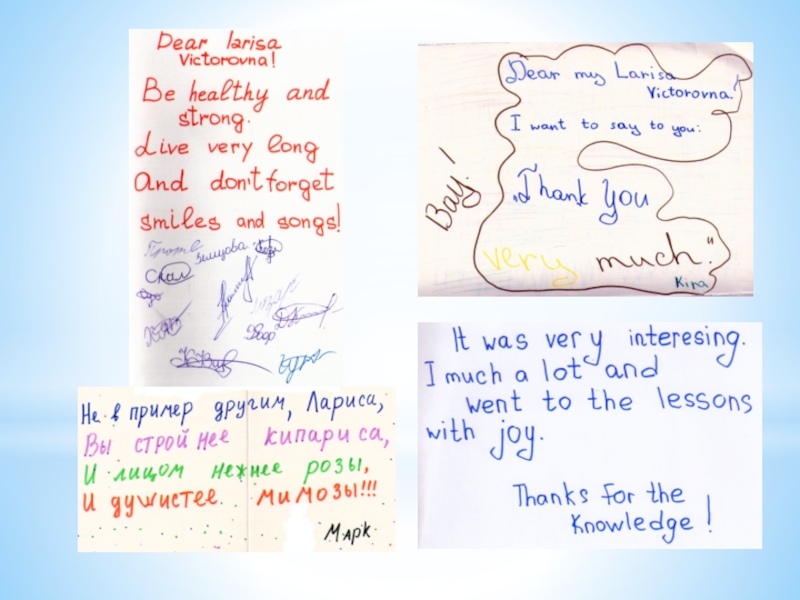 Dear larisa
Victorovna!
Be healthy and
strong.
Live very long
And don't forget
smiles and songs!
Зимцова
Dear my Larisa
Victorovna!
I want to say to you:
„Thank you
very much."
Kira
Bay!
Не в пример другим, Лариса,
Вы стройнее кипариса,
И лицом нежнее розы,
И душистее мимозы!!!
Марк
It was very interesing.
I much a lot and
went to the lessons
with joy.
Thanks for the
knowledge!